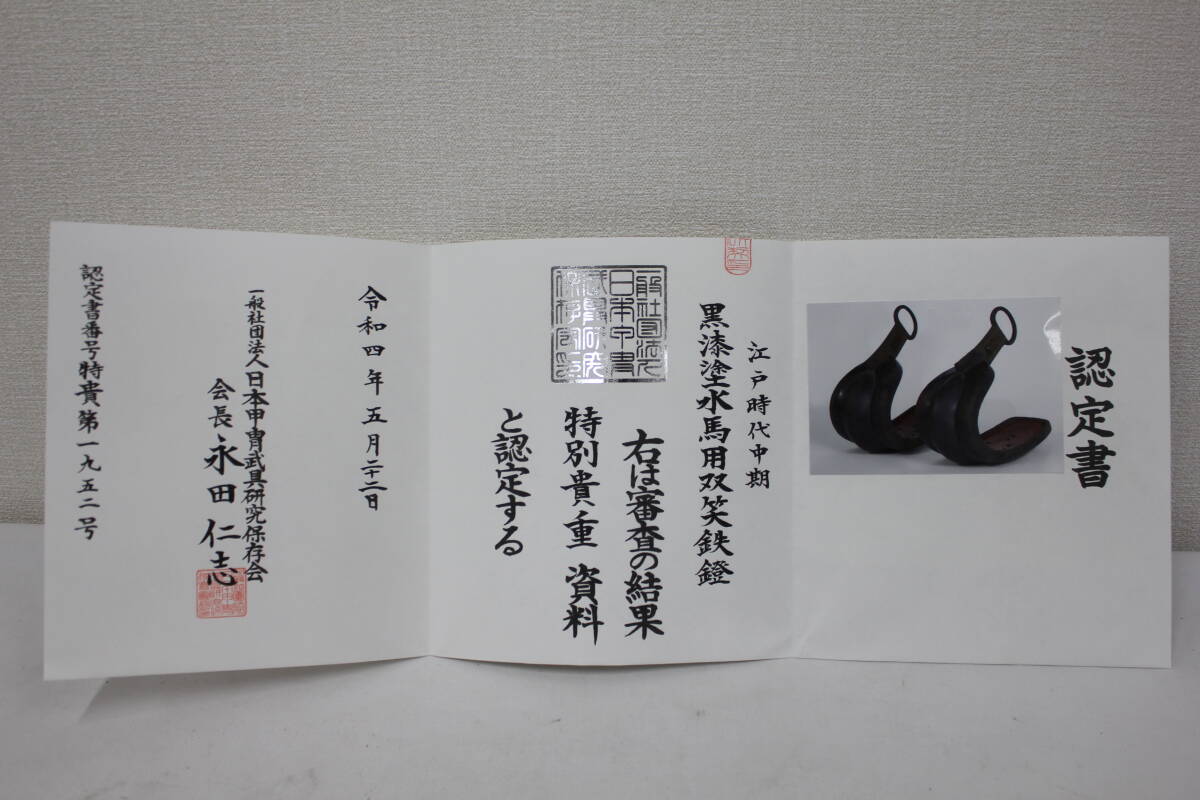 認定書
江戸時代中期
黒漆塗水馬用双笑鉄鐙
右は審査の結果
特別貴重 資料
と認定する
令和四年五月二十二日
一般社団法人日本甲冑武具研究保存会
会長 永田仁志
認定書番号特貴第一九五二号